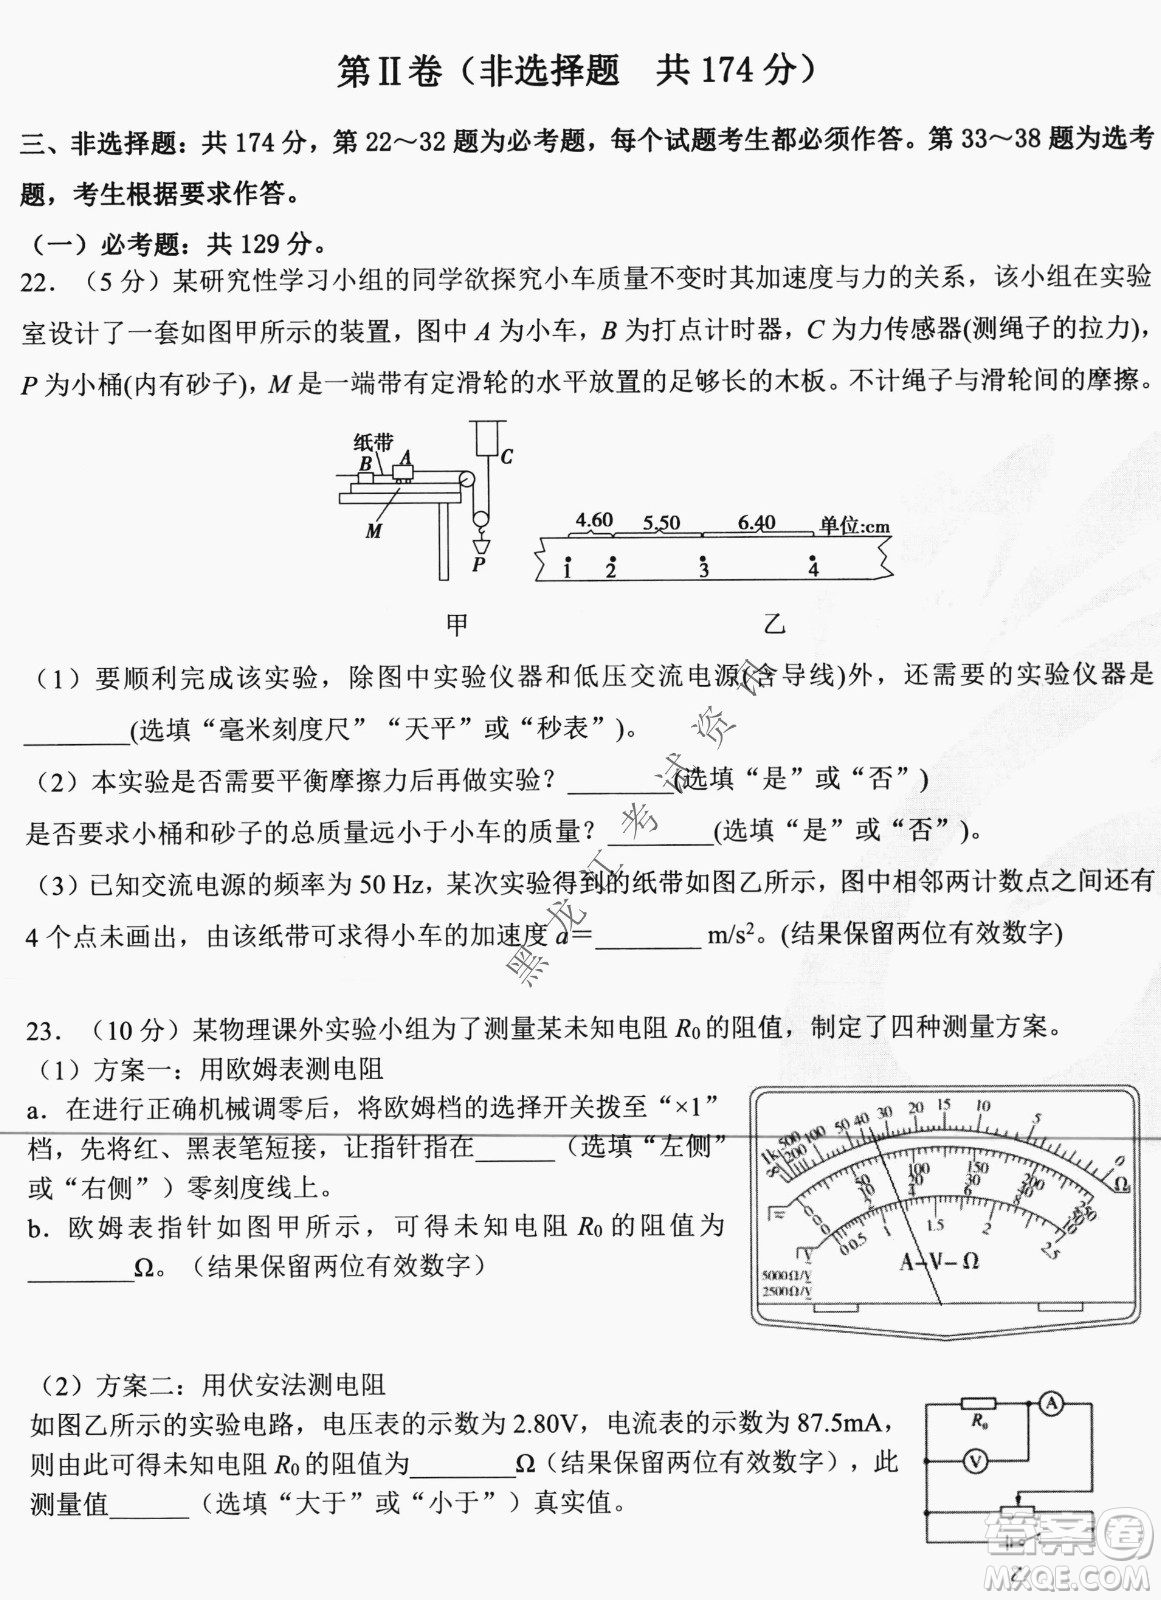 第Ⅱ卷（非选择题　共 174 分）
三、非选择题：共 174 分，第 22～32 题为必考题，每个试题考生都必须作答。第 33～38 题为选考
题，考生根据要求作答。
（一）必考题：共 129 分。
22．（5 分）某研究性学习小组的同学欲探究小车质量不变时其加速度与力的关系，该小组在实验
室设计了一套如图甲所示的装置，图中 A 为小车，B 为打点计时器，C 为力传感器(测绳子的拉力)，
P 为小桶(内有砂子)，M 是一端带有定滑轮的水平放置的足够长的木板。不计绳子与滑轮间的摩擦。
纸带
B A C
M P
4.60 5.50 6.40 单位:cm
1 2 3 4
甲 乙
（1）要顺利完成该实验，除图中实验仪器和低压交流电源(含导线)外，还需要的实验仪器是
________(选填“毫米刻度尺”“天平”或“秒表”)。
（2）本实验是否需要平衡摩擦力后再做实验？________(选填“是”或“否”)
是否要求小桶和砂子的总质量远小于小车的质量？________(选填“是”或“否”)。
（3）已知交流电源的频率为 50 Hz，某次实验得到的纸带如图乙所示，图中相邻两计数点之间还有
4 个点未画出，由该纸带可求得小车的加速度 a＝________ m/s²。(结果保留两位有效数字)
黑龙江考试资讯
23．（10 分）某物理课外实验小组为了测量某未知电阻 R₀的阻值，制定了四种测量方案。
（1）方案一：用欧姆表测电阻
a．在进行正确机械调零后，将欧姆档的选择开关拨至“×1”
档，先将红、黑表笔短接，让指针指在______（选填“左侧”
或“右侧”）零刻度线上。
b．欧姆表指针如图甲所示，可得未知电阻 R₀ 的阻值为
________Ω。（结果保留两位有效数字）
∞ 1k 500 200 100 50 40 30 20 15 10 5 0 Ω
0 50 100 150 200 250
0 10 20 30 40 50
0 2 4 6 8 10
0 0.5 1 1.5 2 2.5
A-V-Ω
5000Ω/V
2500Ω/V
（2）方案二：用伏安法测电阻
如图乙所示的实验电路，电压表的示数为 2.80V，电流表的示数为 87.5mA，
则由此可得未知电阻 R₀ 的阻值为________Ω（结果保留两位有效数字），此
测量值______（选填“大于”或“小于”）真实值。
R₀ A
V
乙
答案卷
MXQE.COM